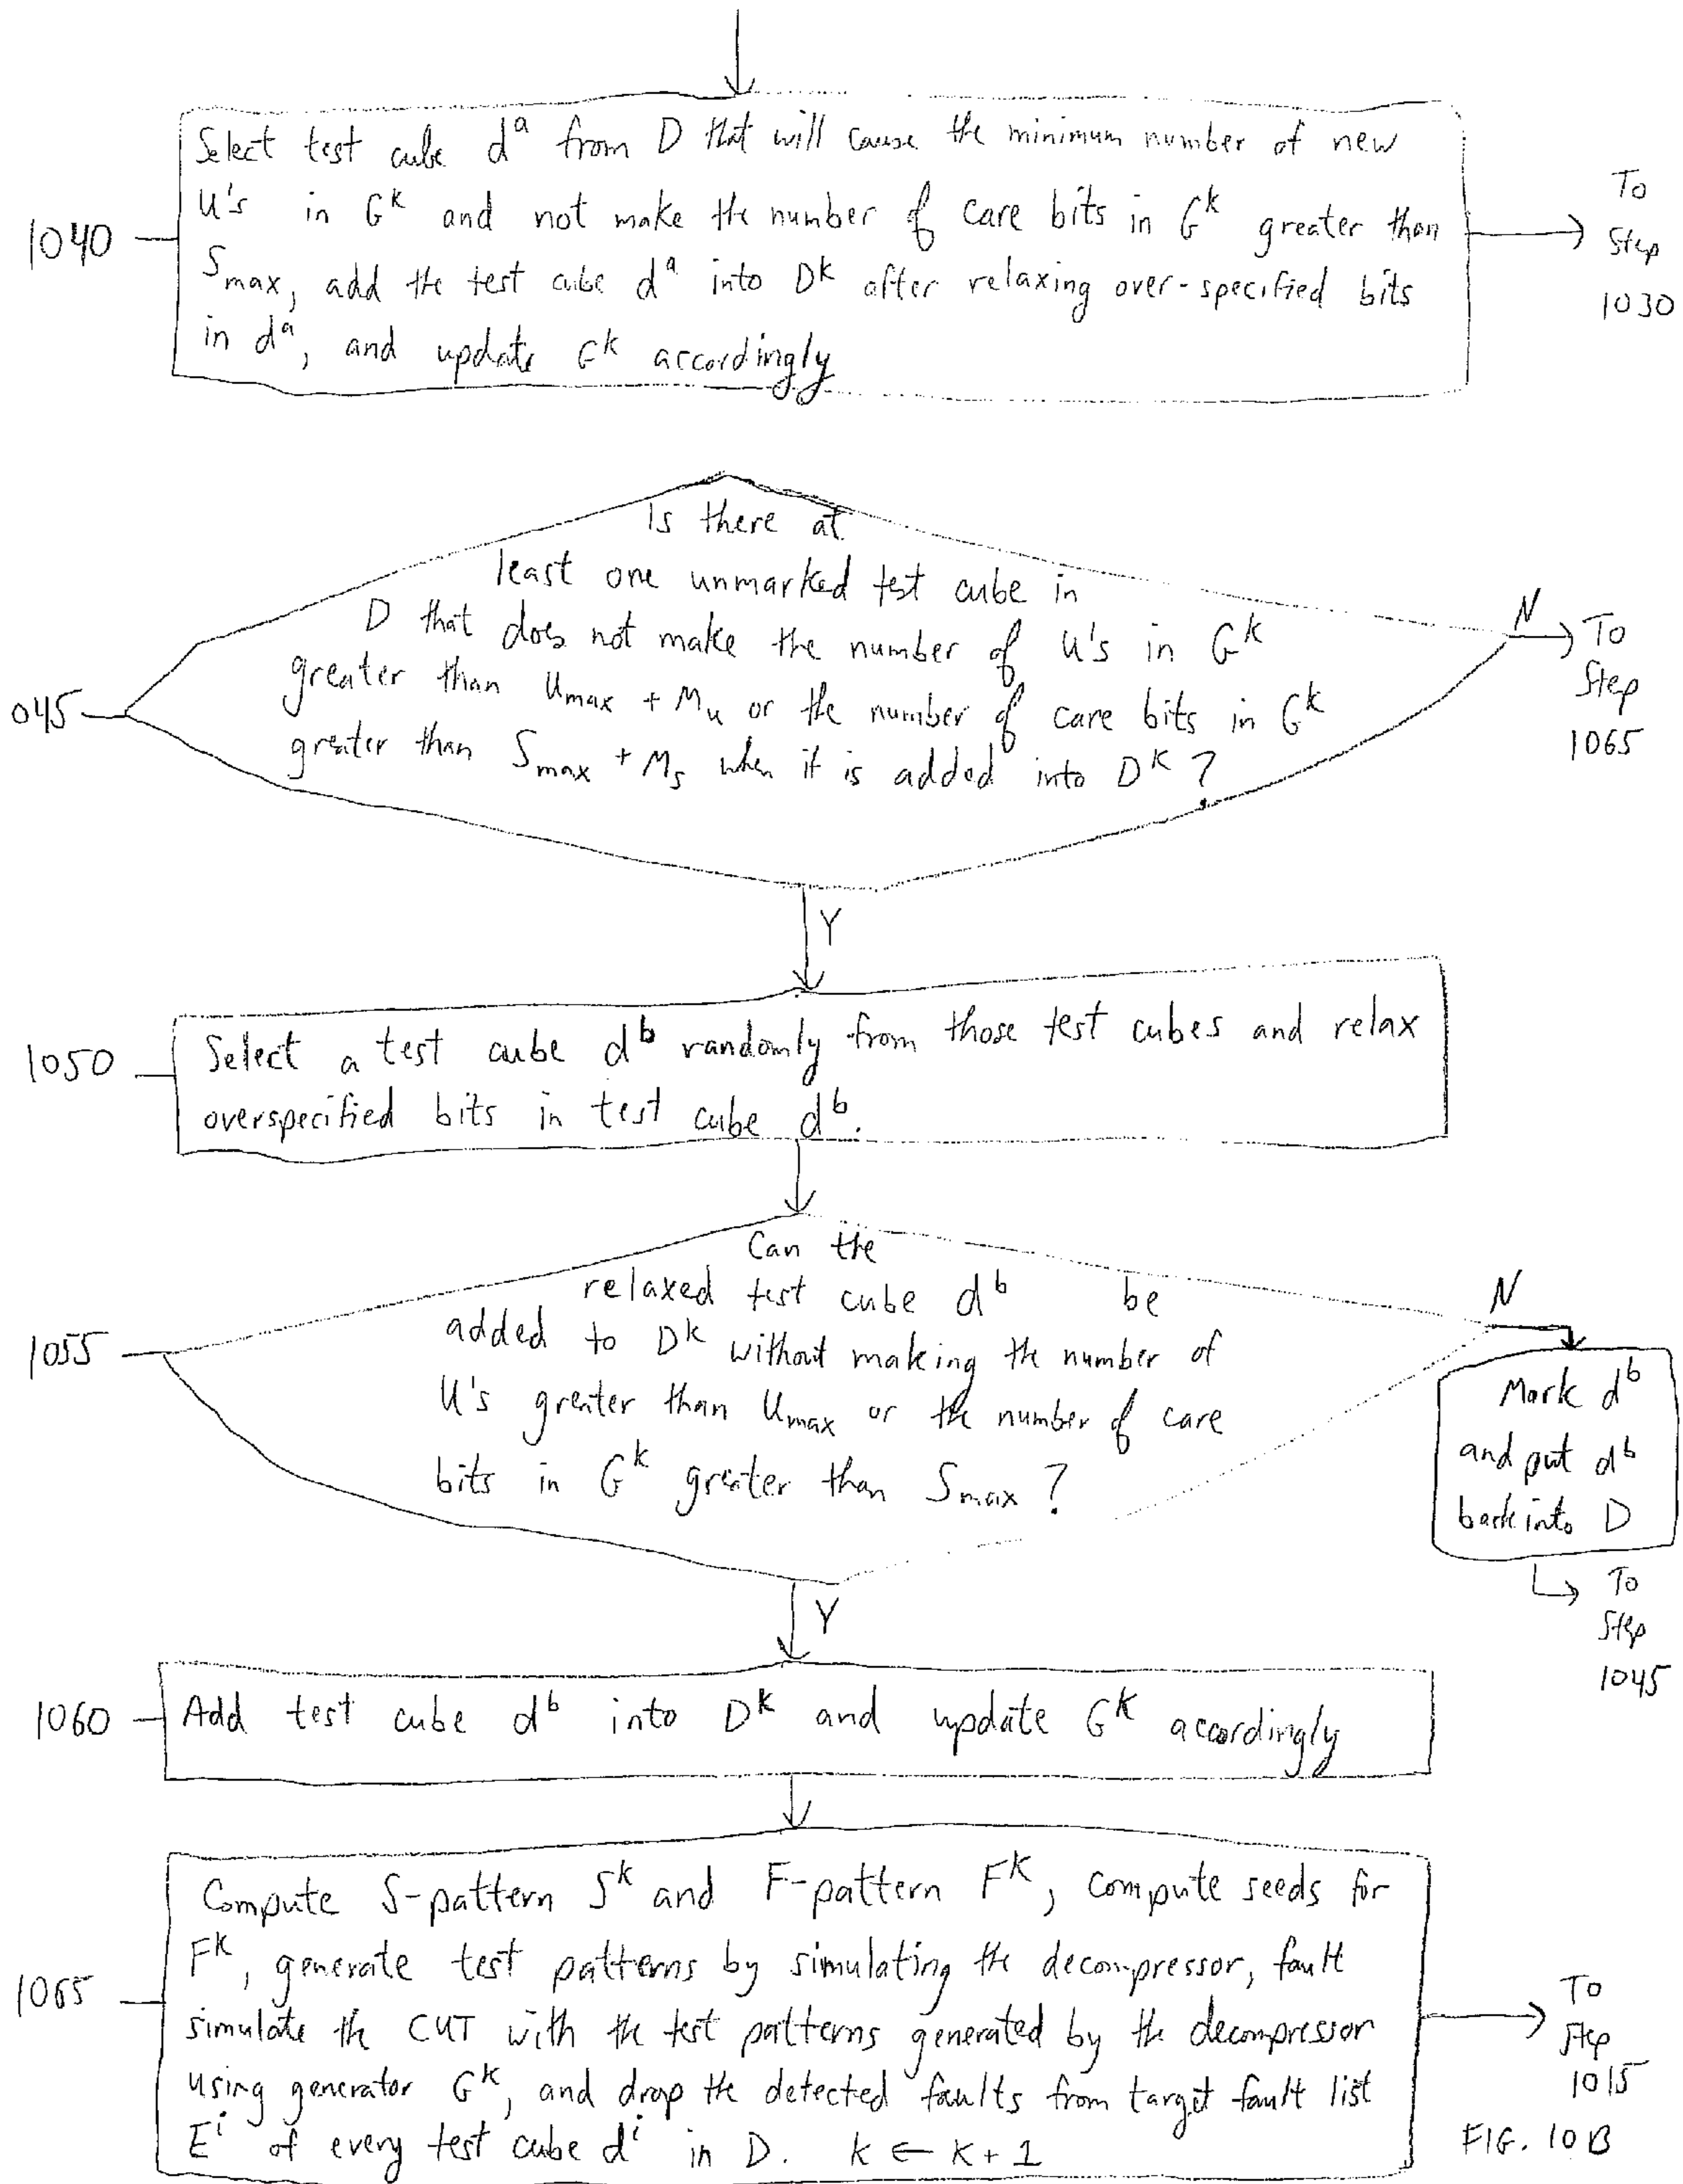 Select test cube dᵃ from D that will cause the minimum number of new
U's in Gᵏ and not make the number of care bits in Gᵏ greater than
Smax, add the test cube dᵃ into Dᵏ after relaxing over-specified bits
in dᵃ, and update Gᵏ accordingly
1040
To
Step
1030
Is there at
least one unmarked test cube in
D that does not make the number of U's in Gᵏ
greater than Umax + Mu or the number of care bits in Gᵏ
greater than Smax + Ms when it is added into Dᵏ ?
045
N
To
Step
1065
Y
1050
Select a test cube dᵇ randomly from those test cubes and relax
overspecified bits in test cube dᵇ.
Can the
relaxed test cube dᵇ be
added to Dᵏ without making the number of
U's greater than Umax or the number of care
bits in Gᵏ greater than Smax ?
1055
N
Mark dᵇ
and put dᵇ
back into D
To
Step
1045
Y
1060
Add test cube dᵇ into Dᵏ and update Gᵏ accordingly
Compute S-pattern Sᵏ and F-pattern Fᴷ, compute seeds for
Fᴷ, generate test patterns by simulating the decompressor, fault
simulate the CUT with the test patterns generated by the decompressor
using generator Gᵏ, and drop the detected faults from target fault list
Eⁱ of every test cube dⁱ in D. k ← k + 1
1065
To
Step
1015
FIG. 10B